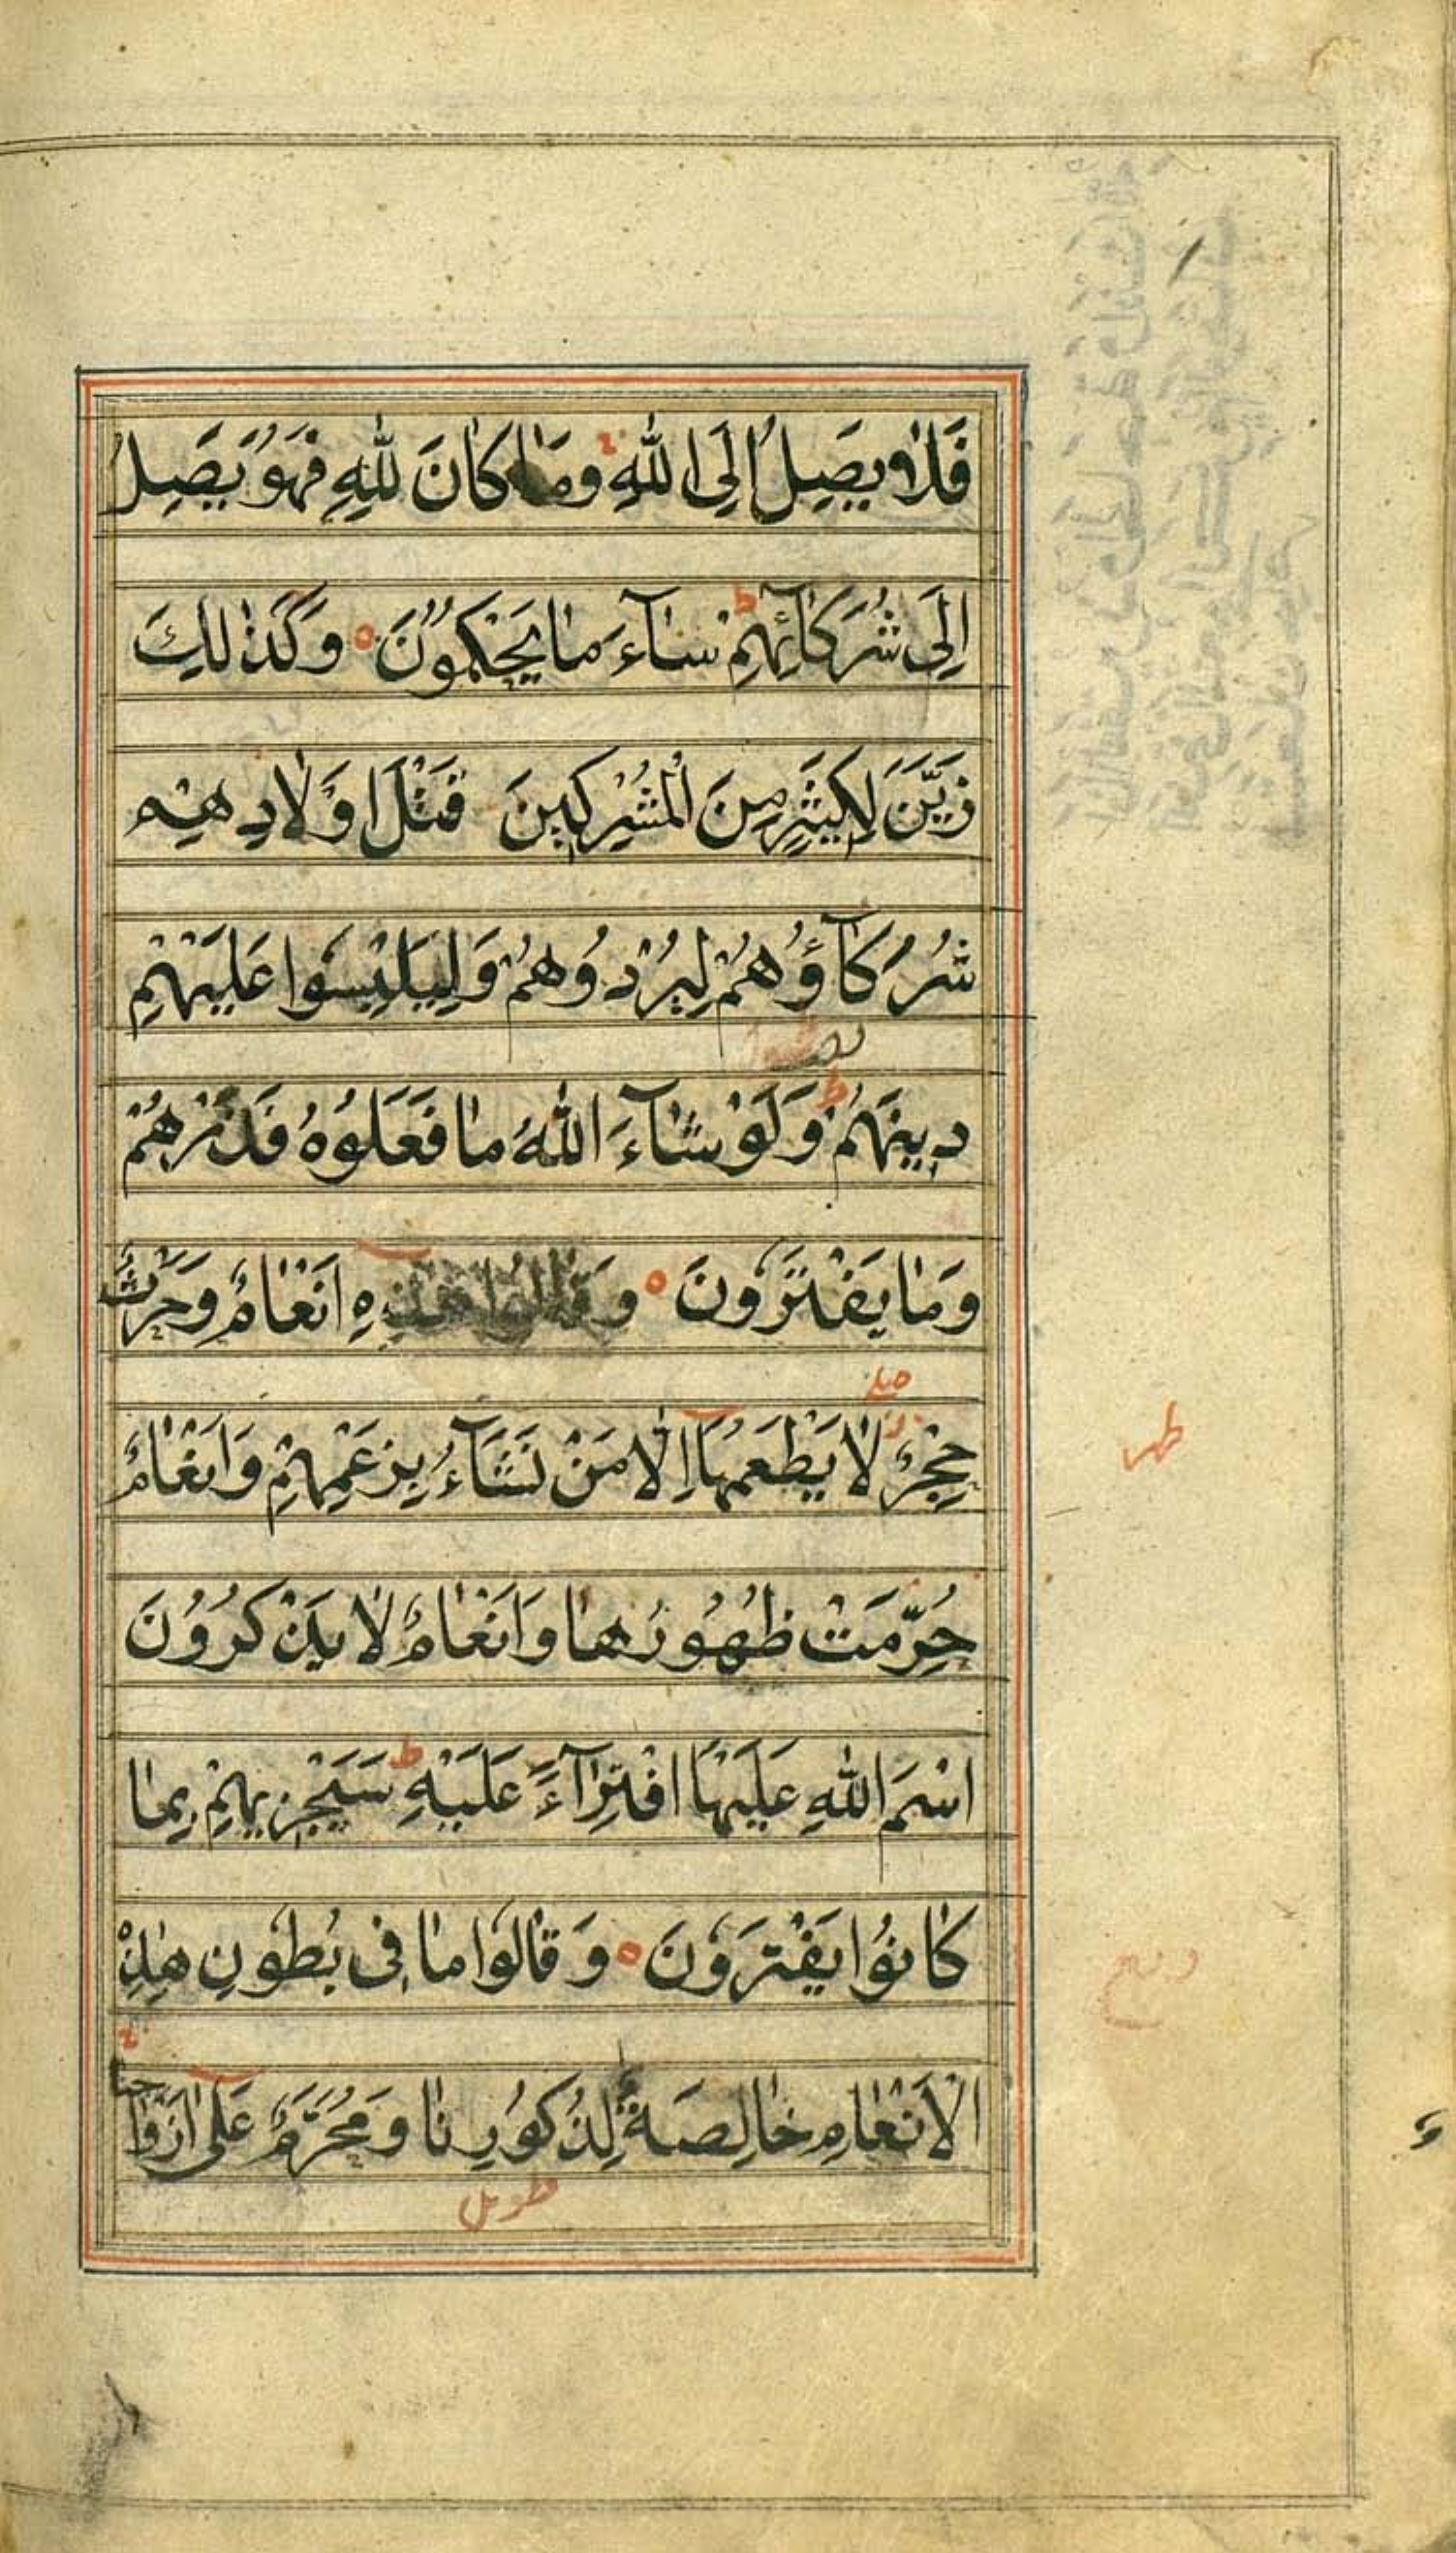 فَلَا يَصِلُ اِلَى اللّٰهِ وَمَا كَانَ لِلّٰهِ فَهُوَ يَصِلُ
اِلٰى شُرَكَآئِهِمْ سَآءَ مَا يَحْكُمُوْنَ وَكَذٰلِكَ
زَيَّنَ لِكَثِيْرٍ مِنَ الْمُشْرِكِيْنَ قَتْلَ اَوْلَادِهِمْ
شُرَكَآؤُهُمْ لِيُرْدُوْهُمْ وَلِيَلْبِسُوْا عَلَيْهِمْ
دِيْنَهُمْ ط وَلَوْ شَآءَ اللّٰهُ مَا فَعَلُوْهُ فَذَرْهُمْ
وَمَا يَفْتَرُوْنَ وَقَالُوْا هٰذِهِ اَنْعَامٌ وَحَرْثٌ
حِجْرٌ لَا يَطْعَمُهَا اِلَّا مَنْ نَشَآءُ بِزَعْمِهِمْ وَاَنْعَامٌ
حُرِّمَتْ ظُهُوْرُهَا وَاَنْعَامٌ لَا يَذْكُرُوْنَ
اسْمَ اللّٰهِ عَلَيْهَا افْتِرَآءً عَلَيْهِ ط سَيَجْزِيْهِمْ بِمَا
كَانُوْا يَفْتَرُوْنَ وَقَالُوْا مَا فِى بُطُوْنِ هٰذِهِ
الْاَنْعَامِ خَالِصَةٌ لِذُكُوْرِنَا وَمُحَرَّمٌ عَلٰى اَزْوَاجِنَا